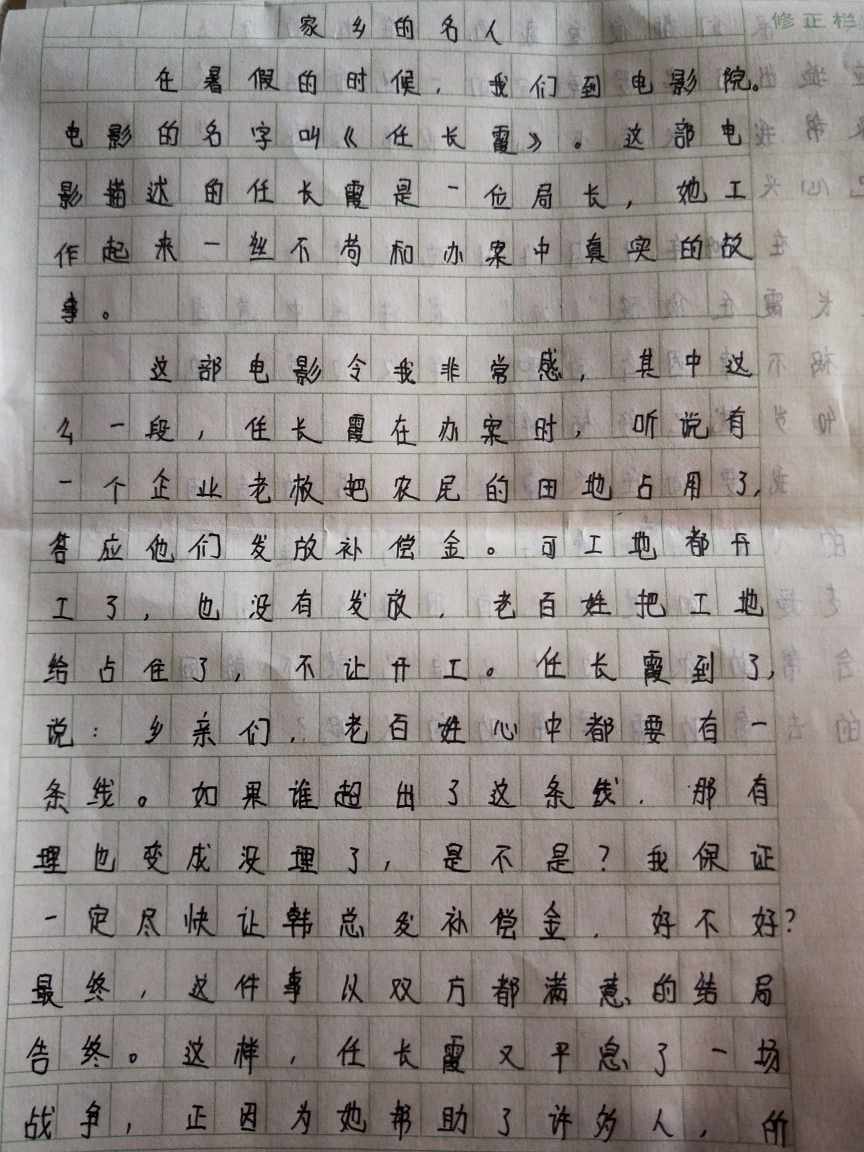 修正栏
家乡的名人
在暑假的时候，我们到电影院。
电影的名字叫《任长霞》。这部电
影描述的任长霞是一位局长，她工
作起来一丝不苟和办案中真实的故
事。
这部电影令我非常感，其中这
么一段，任长霞在办案时，听说有
一个企业老板把农民的田地占用了，
答应他们发放补偿金。可工地都开
工了，也没有发放，老百姓把工地
给占住了，不让开工。任长霞到了，
说：乡亲们，老百姓心中都要有一
条线。如果谁超出了这条线，那有
理也变成没理了，是不是？我保证
一定尽快让韩总发补偿金，好不好？
最终，这件事以双方都满意的结局
告终。这样，任长霞又平息了一场
战争，正因为她帮助了许多人，所